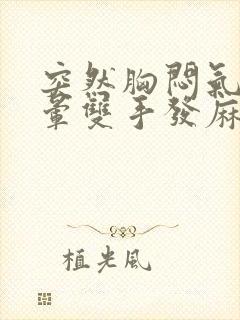 突然胸悶氣
暈雙手發麻
植光風